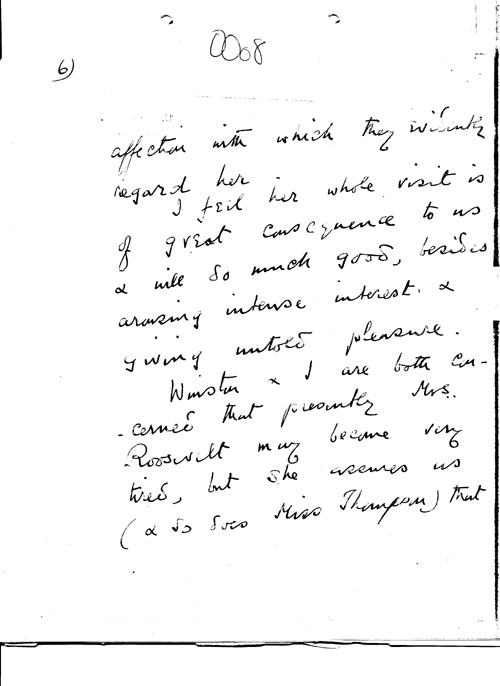 0008
6)
affection with which they evidently
regard her
I feel her whole visit is
of great consequence to us
& will do much good, besides
arousing intense interest. &
giving untold pleasure.
Winston & I are both con-
-cerned that presently Mrs.
Roosevelt may become very
tired, but she assures us
(& so does Miss Thompson) that